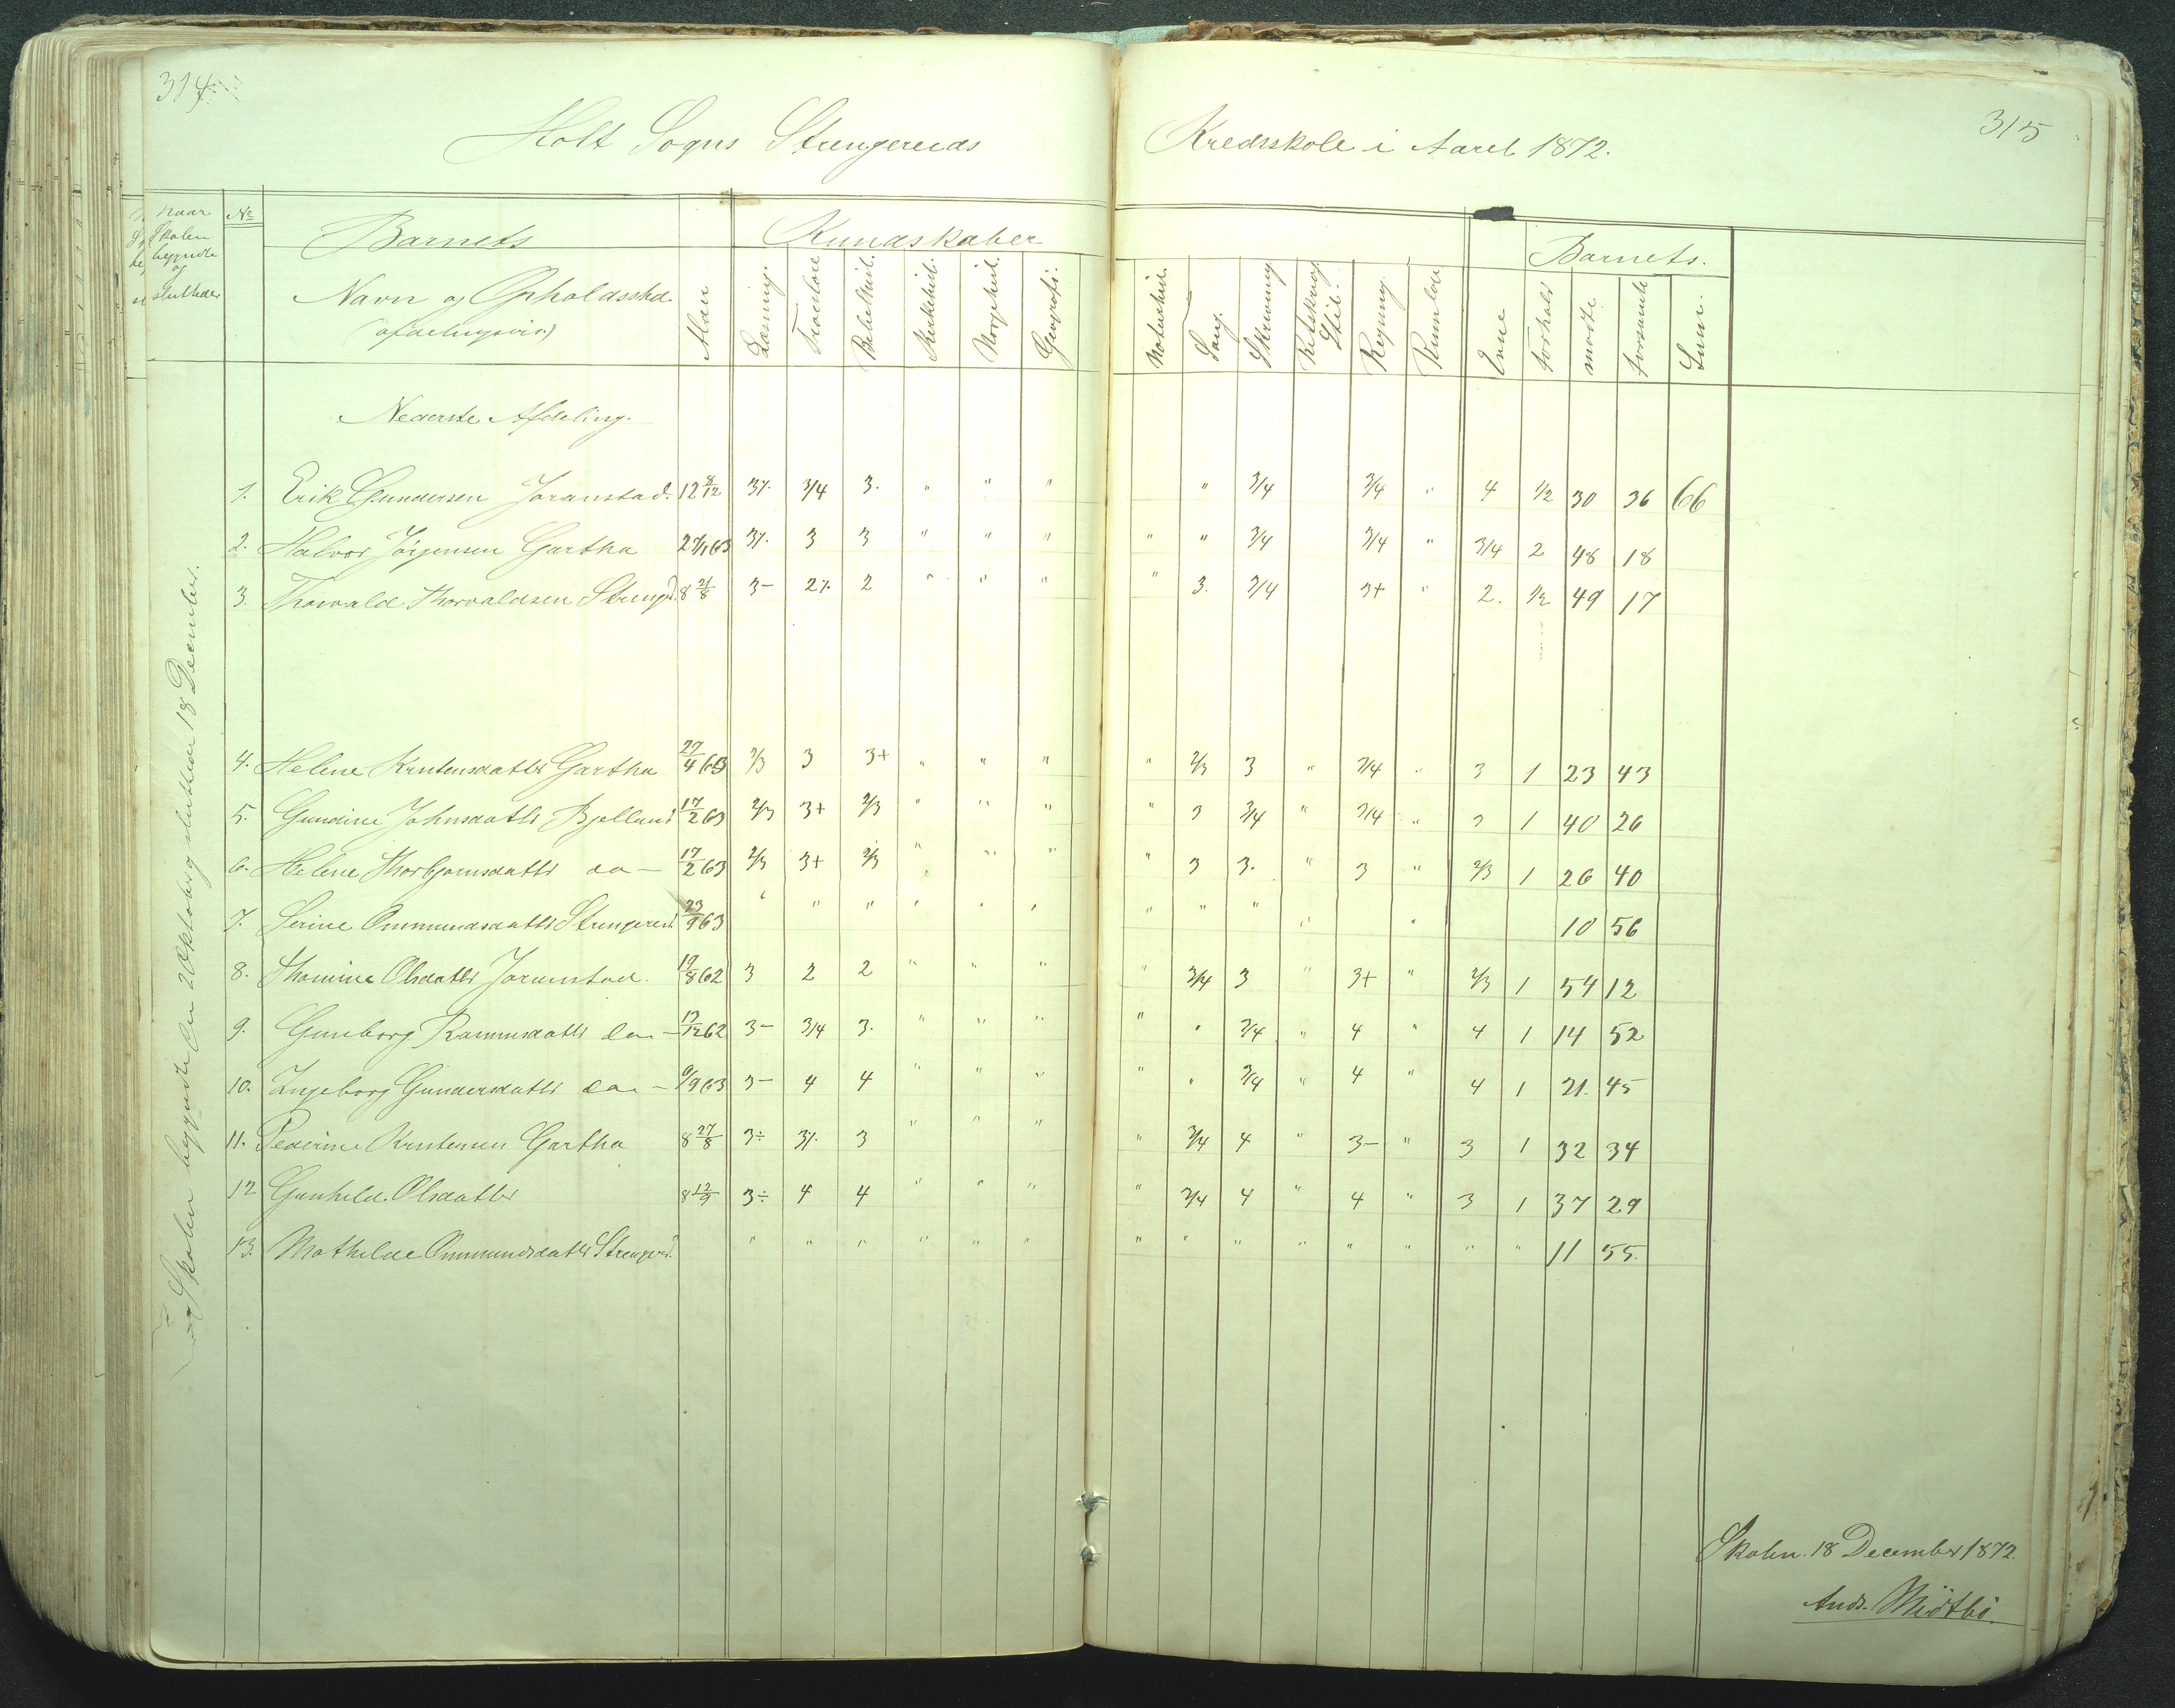 314
315
Holt Sogns Strengereids Kredsskole i Aaret 1872.
Naar Skolen begyndte og sluttedes
No
Barnets
Navn og Opholdssted.
(afdelingsvis.)
Alder
Kundskaber
Læsning.
Troeslære
Bibelhist.
Kirkehist.
Norgehist.
Geografi.
Naturhist.
Sang.
Skrivning
Retskrivg Stil.
Regning
Rumlære
Evne
Barnets.
Forhold
mødte
forsømte
Sum.
Skolen begyndte den 2 Oktober og sluttedes 18 December.
Nederste Afdeling.
1. Erik Gundersen Joranstad. 12 8/12 3% 3/4 3. " " " " 3/4 3/4 " 4 1/2 30 36 66
2. Halvor Jörgensen Gartha 63 3% 3 3 " " " " " 3/4 3/4 " 3/4 2 48 18
3. Thorvald Thorvaldsen Streng 8 21/8 3- 2% 2 " " " " 3. 3/4 3+ " 2. 1/2 49 17
4. Helene Kristensdatter Gartha 27/4 63 2/3 3 3+ " " " " 2/3 3 " 3/4 " 3 1 23 43
5. Gundine Johnsdatter Bjelland 17/2 63 2/3 3+ 2/3 " " " " 3 3/4 " 3/4 " 3 1 40 26
6. Helene Thorbjörnsdatter do - 17/2 63 2/3 3+ 2/3 " " " " 3 3. " 3 " 2/3 1 26 40
7. Serine Ommundsdatter Strengereid 23/9 63 " " " " " " " " " " " 10 56
8. Thomine Olsdatter Joranstad. 19/8 62 3 2 2 " " " " 3/4 3 " 3+ " 2/3 1 54 12
9. Gunborg Rasmusdatter do - 13/12 62 3- 3/4 3. " " " " " 3/4 " 4 " 4 1 14 52
10. Ingeborg Gundersdatter do - 9/9 63 3- 4 4 " " " " " 3/4 " 4 " 4 1 21. 45
11. Pederine Kristensen Gartha 8 27/8 3÷ 3% 3 " " " " 3/4 4 " 3- " 3 1 32 34
12 Gunhild Olsdatter 8 12/9 3÷ 4 4 " " " " 3/4 4 " 4 " 3 1 37 29
13. Mathilde Ommundsdatter Strengerd. " " " " " " " " " " " " " " 11 55.
Skolen. 18 December 1872.
Ands.